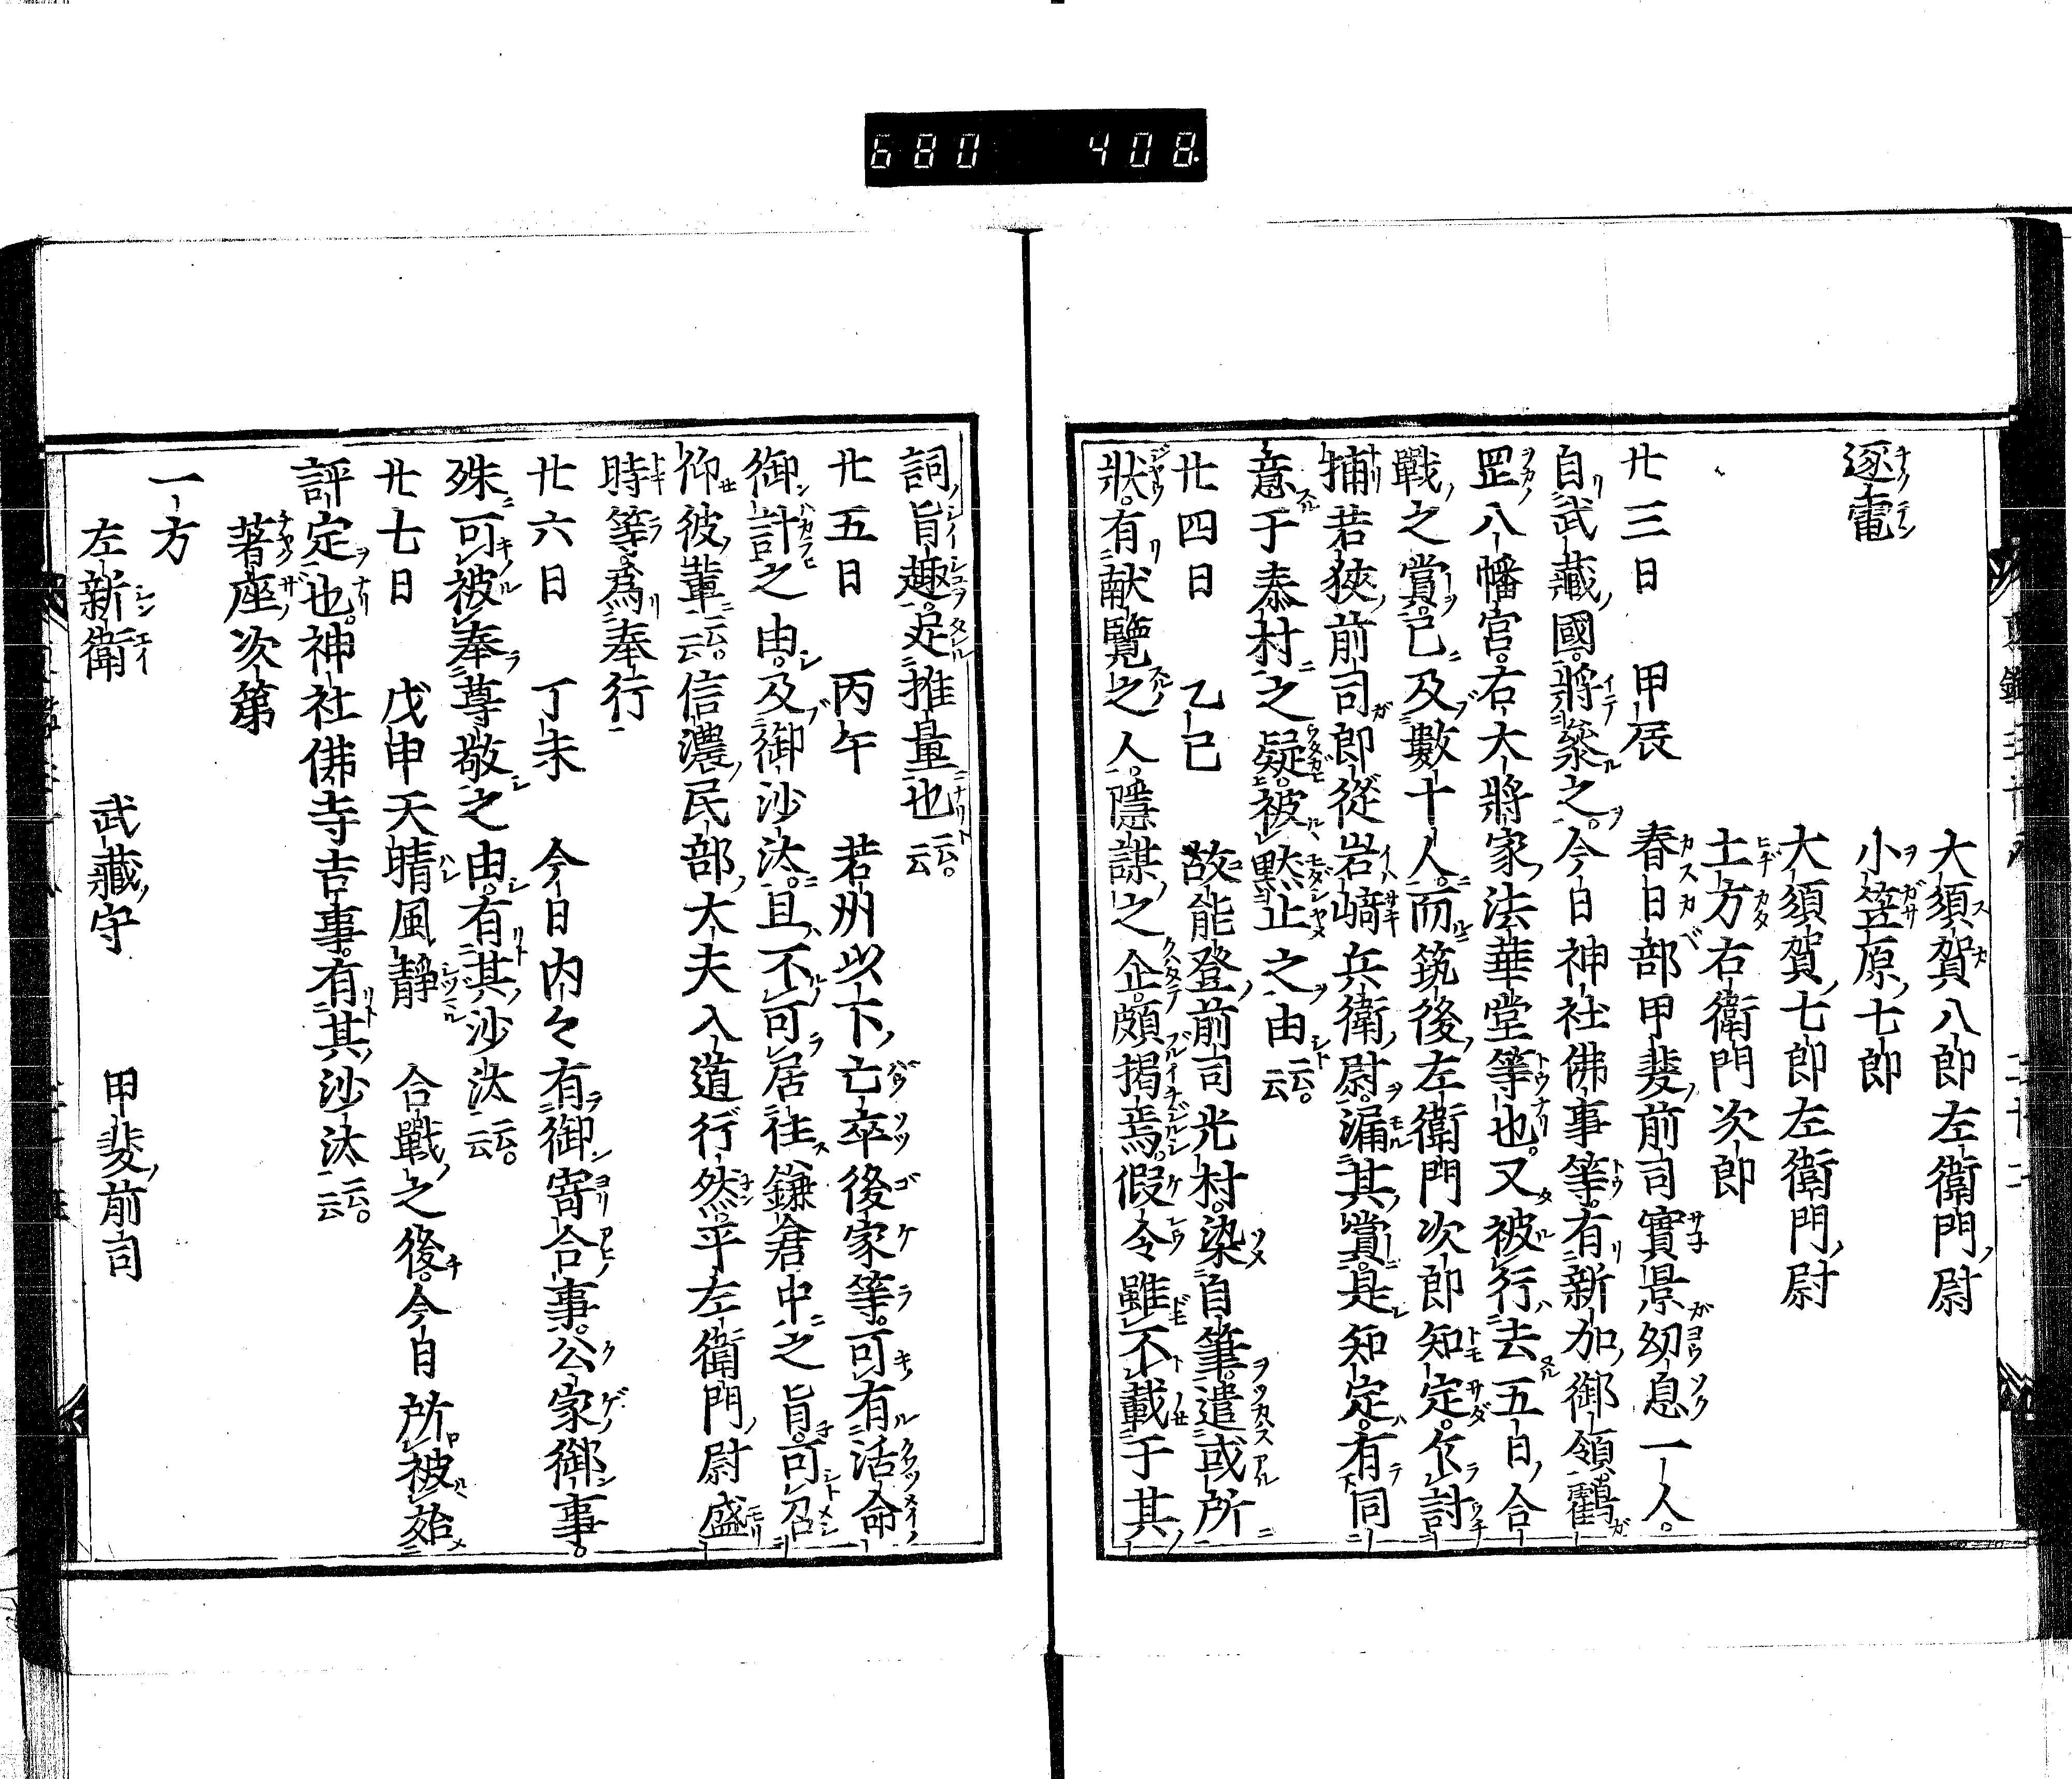 680 408
大須賀八郎左衛門尉
逐電 小笠原七郎
大須賀七郎左衛門尉
土方右衛門次郎
廿三日 甲辰 春日部甲斐前司實景幼息一人。
自武藏國。將參之。今日神社佛事等。有新加御領。鶴
罡八幡宮。右大將家法華堂等也。又被行去五日合
戰之賞。已及數十人。而筑後左衛門次郎知定。乍討
捕若狹前司郎從岩﨑兵衛尉。漏其賞。是知定。有同
意于泰村之疑。被黙止之由云云。
廿四日 乙巳 故能登前司光村。染自筆。遣或所
狀。有献覽之人。隱謀之企。頗揭焉。假令雖不載于其
詞。旨趣。足推量也云云。
廿五日 丙午 若州以下亡卒後家等。可有活命
御計之由。及御沙汰。且不可居住鎌倉中之旨。可召
仰彼輩云云。信濃民部大夫入道行然。平左衛門尉盛
時等。爲奉行
廿六日 丁未 今日内々有御寄合事。公家御事。
殊可被奉尊敬之由。有其沙汰云云。
廿七日 戊申 天晴風靜 合戰之後。今日所被始
評定也。神社佛寺吉事。有其沙汰云云。
著座次第
一方
左新衛 武藏守 甲斐前司